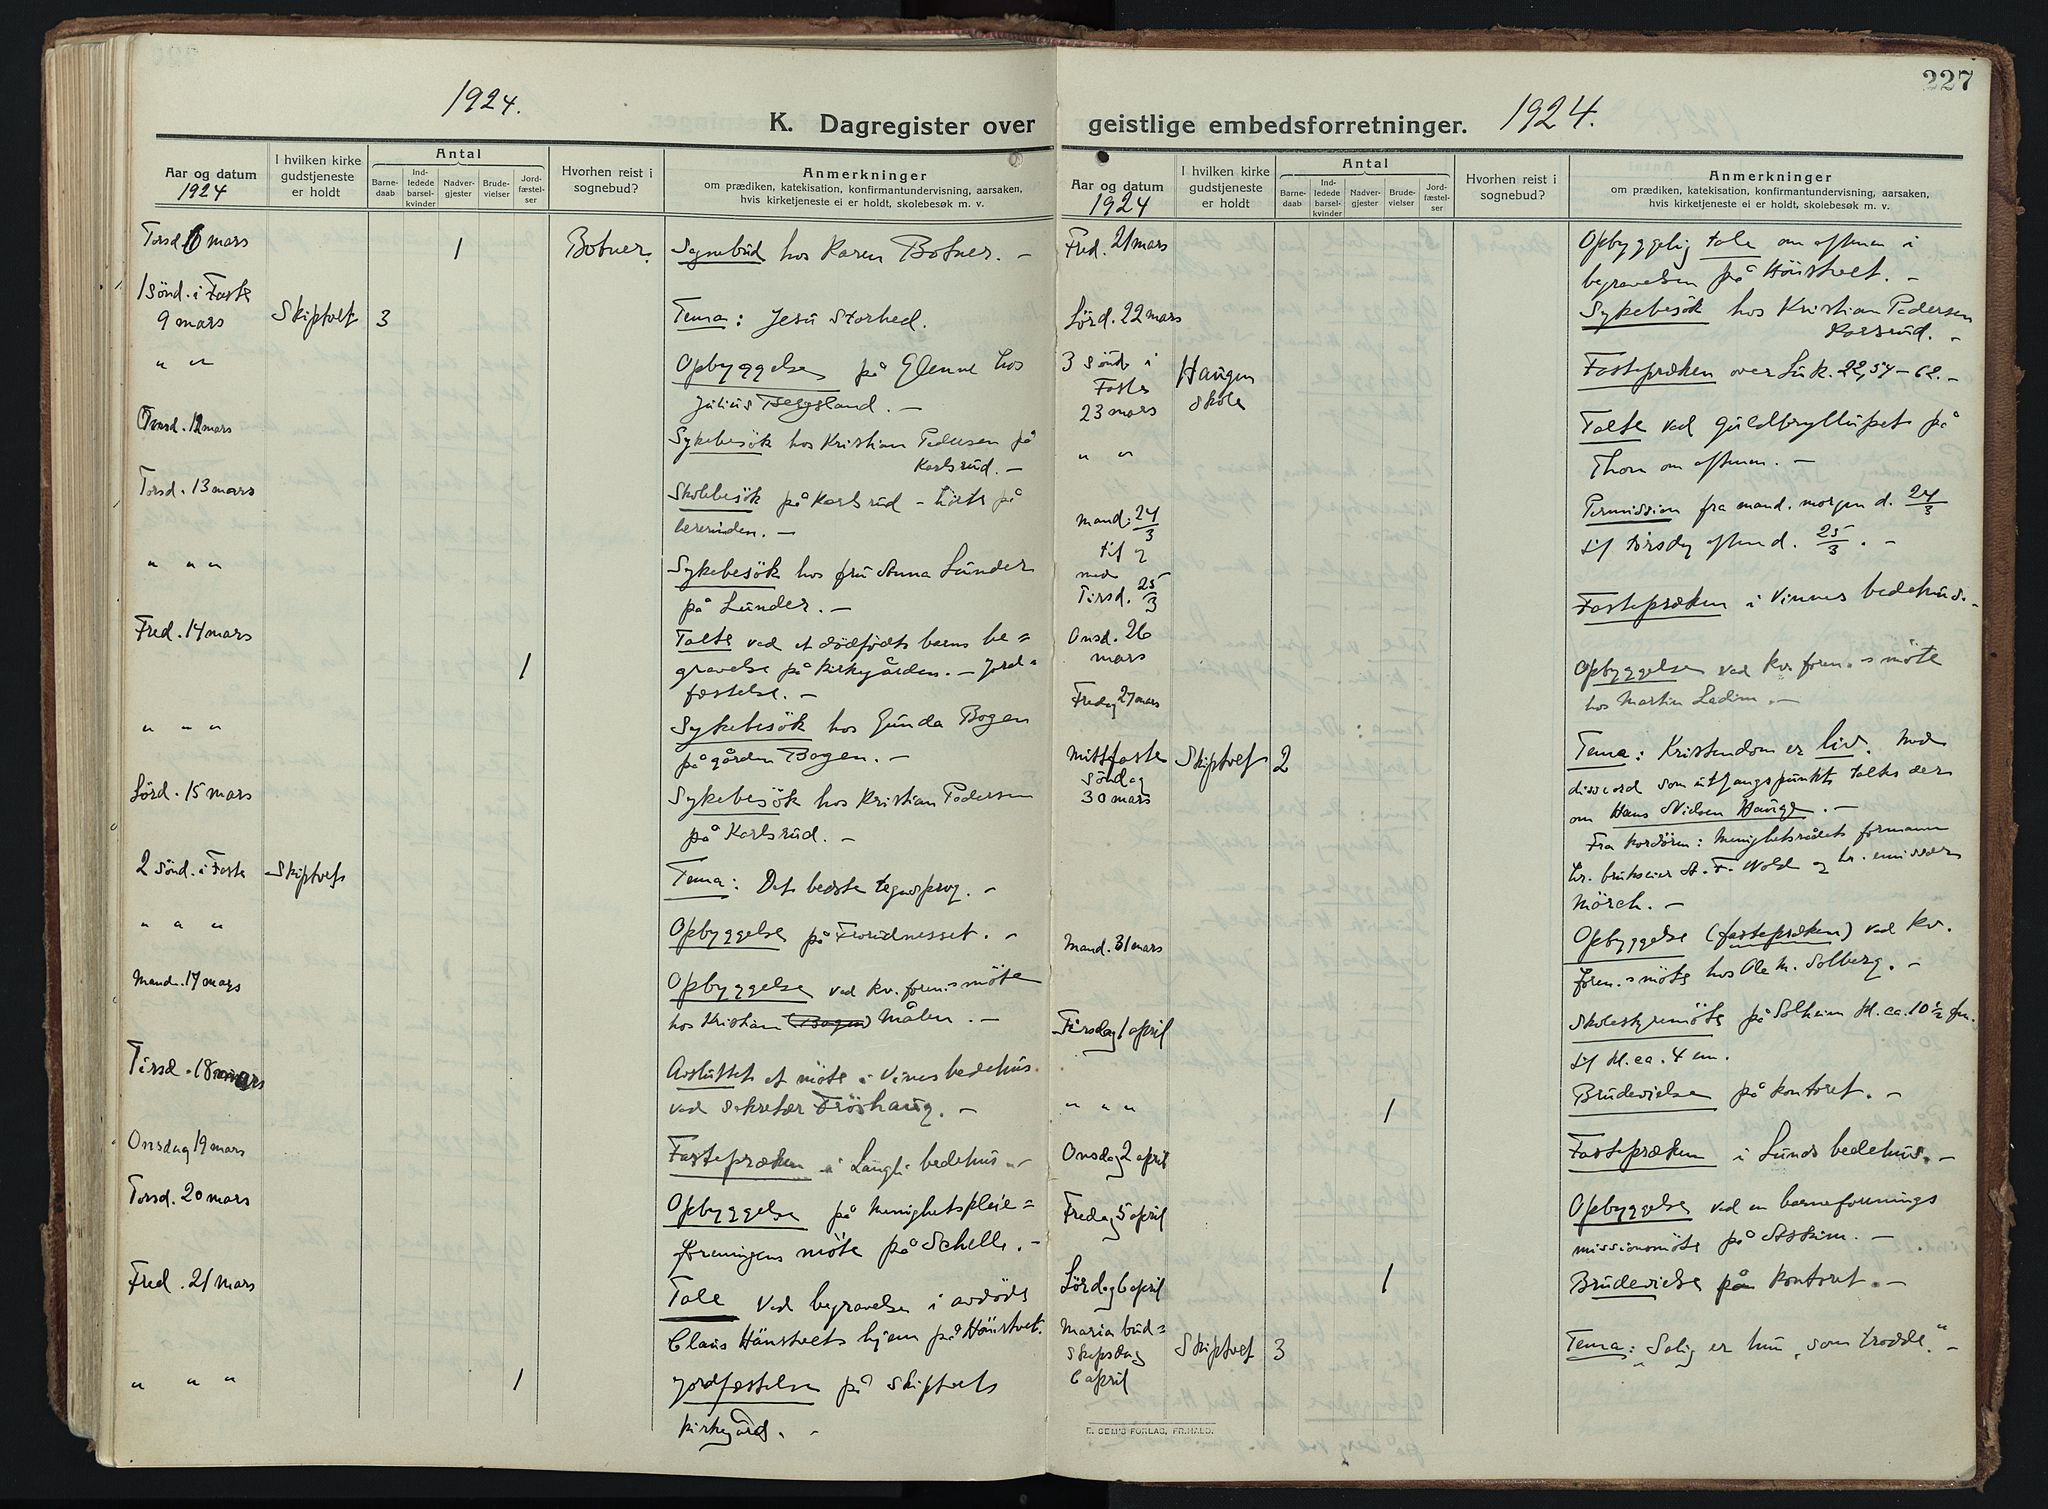 1924.
K. Dagregister over
Aar og datum
1924
I hvilken kirke
gudstjeneste
er holdt
Antal
Barne-
daab
Ind-
ledede
barsel-
kvinder
Nadver-
gjester
Brude-
vielser
Jord-
fæstel-
ser
Hvorhen reist i
sognebud?
Anmerkninger
om prædiken, katekisation, konfirmantundervisning, aarsaken,
hvis kirketjeneste ei er holdt, skolebesøk m. v.
Torsd. 6 mars 1 Botner. Sognebud hos Karen Botner. –
1 sönd. i Faste
9 mars Skiptvet 3 Tema: Jesu storhed.
" " Opbyggelse på Glenne hos
Julius –
Onsd. 12 mars Sykebesök hos Kristian Pedersen på
Karlsrud. –
Torsd. 13 mars Skolebesök på Karlsrud – hörte på
lærerinden. –
" " " Sykebesök hos fru Anna Lunder
på Lunder. –
Fred. 14 mars Talte ved et dödfödt barns be=
1 gravelse på kirkegården. – Jord=
fæstelse. –
" " " Sykebesök hos Gunda Bogen
på gården Bogen. –
Lörd. 15 mars Sykebesök hos Kristian Pedersen
på Karlsrud. –
2 sönd. i Faste Skiptvet
Tema: Det bedste tegnsprog. –
" " " Opbyggelse på –
Mand. 17 mars Opbyggelse ved kv. foren.s möte
hos Kristian (Bogen) Målen. –
Tirsd. 18 mars Avsluttet et möte i Vines bedehus
ved sekretær Fröshaug. –
Onsdag 19 mars Fastepræken i Langli bedehus. –
Torsd. 20 mars Opbyggelse på Menighetspleie=
foreningens möte på Schelle. –
Fred. 21 mars Tale ved begravelse i avdöde
Claus Hönstvets hjem på Hönstvet.
" " " 1 Jordfæstelse på Skiptvets
kirkegård. –
227
geistlige embedsforretninger. 1924.
Aar og datum
1924
I hvilken kirke
gudstjeneste
er holdt
Antal
Barne-
daab
Ind-
ledede
barsel-
kvinder
Nadver-
gjester
Brude-
vielser
Jord-
fæstel-
ser
Hvorhen reist i
sognebud?
Anmerkninger
om prædiken, katekisation, konfirmantundervisning, aarsaken,
hvis kirketjeneste ei er holdt, skolebesøk m. v.
Fred. 21 mars Opbyggelig tale om aftenen i
begravelsen på Hönstvet. –
Lörd. 22 mars Sykebesök hos Kristian Pedersen
Karlsrud. –
3 sönd i
Faste
23 mars
Haugen
skole
Fastepræken over Luk. 22,54–62. –
" " Talte ved guldbryllupet på
Thorn om aftenen. –
Mand. 24/3
til og
med
Tirsd. 25/3
Permission fra mand. morgen d. 24/3
til tirsdag aften d. 25/3. –
Onsd. 26
mars
Fastepræken i Vinnes bedehus. –
Fredag 27 mars Opbyggelse ved kv. foren.s möte
hos Martin Ladim. –
Mittfaste
söndag
30 mars
Skiptvet 2
Tema: Kristendom er liv. Med
disse ord som utgangspunkt taltes der
om Hans Nielsen Hauge. –
Fra kordören: Menighetsrådets formann
hr. brukseier A. F. Wold og hr. emissær
Mörch. –
Mand. 31 mars Opbyggelse (fastepræken) ved kv.
foren.s möte hos Ole M. Solberg. –
Tirsdag 1 april Skolestyremöte på Solheim kl. ca. 10½ fm.
til kl. ca. 4 em.
" " " 1 Brudevielse på kontoret. –
Onsdag 2 april Fastepræken i Lunds bedehus. –
Fredag 5 april Opbyggelse ved en barneforenings
missionsmöte på –
Lördag 6 april 1 Brudevielse på kontoret. –
Maria bud=
skapsdag
6 april
Skiptvet 3
Tema: „Salig er hun, som trodde." –
E. SEM'S FORLAG, FR.HALD.